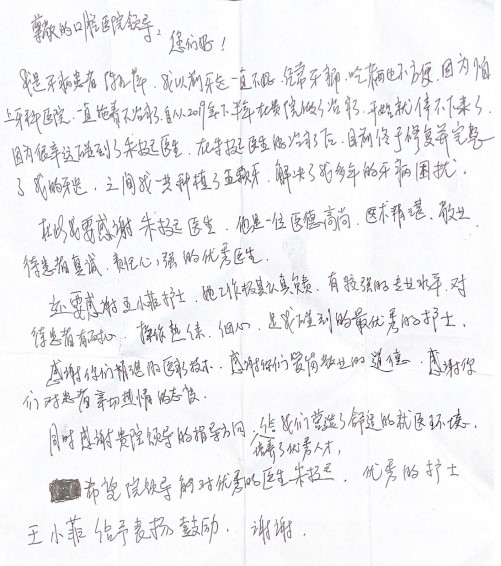 尊敬的口腔医院领导：
您们好！
我是牙病患者 我以前牙齿一直不好 经常牙痛、吃东西也不方便、因为怕
上牙科医院、一直拖着不治疗，自从2019年下半年在贵院做了治疗，开始就停不下来了，
因为很幸运碰到了朱 医生、在朱 医生的治疗下、目前终于修复并完整
了我的牙齿、之间我一共种植了五颗牙、解决了我多年的牙病困扰。
在此我要感谢朱 医生、他是一位医德高尚、医术精湛、敬业、
待患者真诚、责任心强的优秀医生。
还要感谢王小菲护士、她工作极其认真负责、有较强的专业水平、对
待患者有耐心、操作熟练、细心、是我碰到的最优秀的护士、
感谢你们精湛的医疗技术、感谢你们爱岗敬业的道德、感谢你
们对患者亲切热情的态度。
同时感谢贵院领导的指导方向、给我们营造了舒适的就医环境、
培养了优秀人才，
希望院领导能对优秀的医生朱 、优秀的护士
王小菲给予表扬鼓励、谢谢、